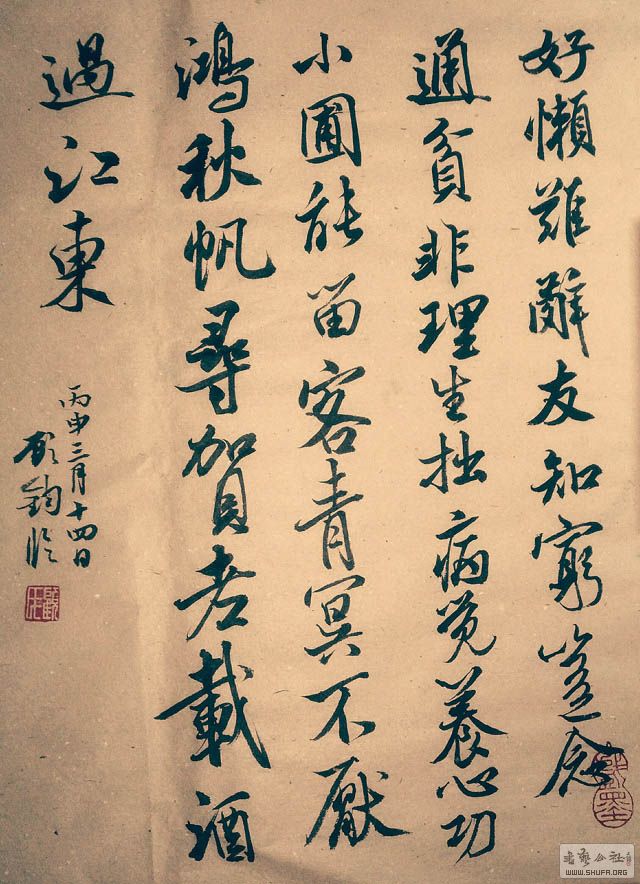 好懶難辭友知窮豈念
通貧非理生拙病覺養心功
小圃能留客青冥不厭
鴻秋帆尋賀老載酒
過江東
丙申三月十四日
顧鈞臨
書法公社
WWW.SHUFA.ORG